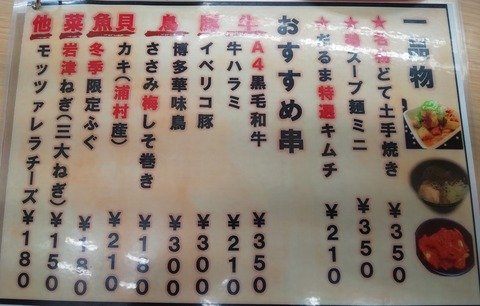 一品物
★名物どて土手焼き ¥350
★スープ麺ミニ ¥350
★だるま特選キムチ ¥210
おすすめ串
牛 A4黒毛和牛 ¥350
牛ハラミ ¥210
豚 イベリコ豚 ¥300
鳥 博多華味鳥 ¥300
ささみ梅しそ巻き ¥180
貝 カキ(浦村産) ¥210
魚 冬季限定ふぐ ¥180
菜 岩津ねぎ(三大ねぎ) ¥150
他 モッツァレラチーズ ¥180